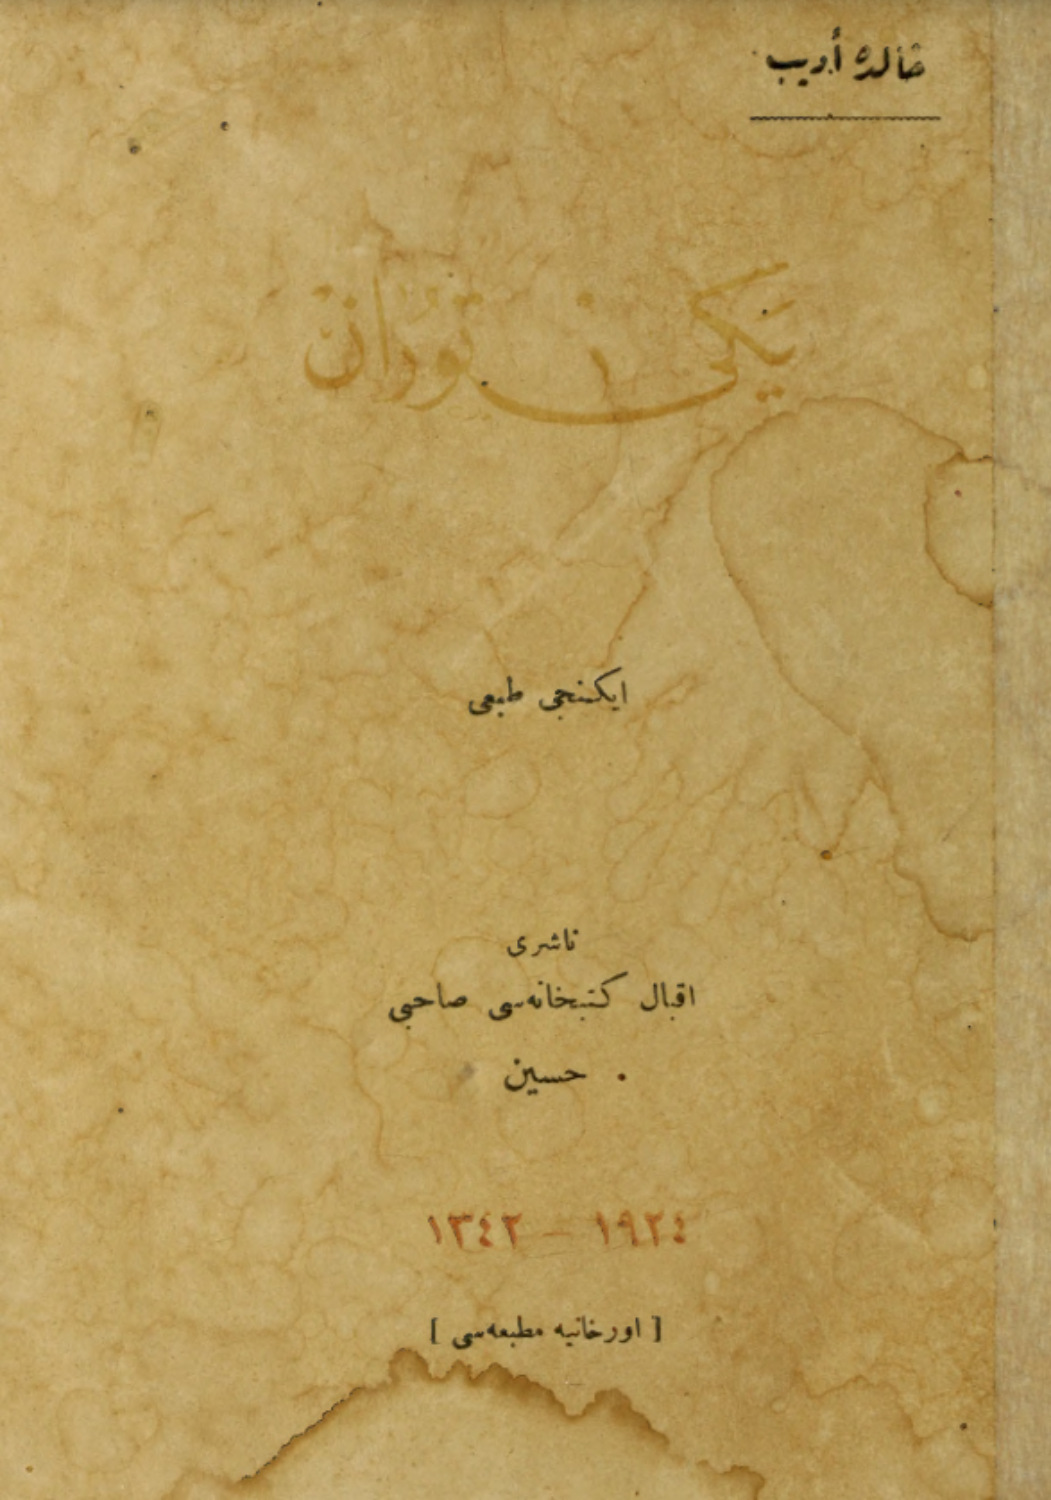 خالده أديب
يَكى تُورَان
ايكنجى طبعى
ناشرى
اقبال كتبخانه‌سى صاحبى
حسين
١٣٤٢ – ١٩٢٤
[ اورخانيه مطبعه‌سى ]